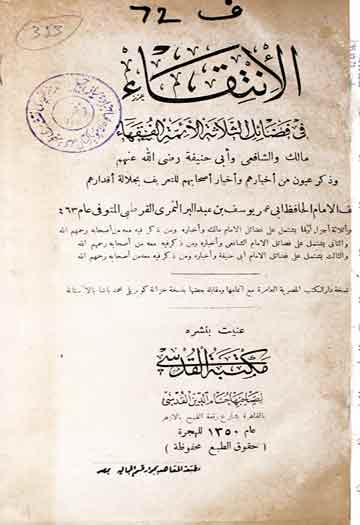 ف 72
333
الإنتقاء
في فضائل الثلاثة الأئمة الفقهاء
مالك والشافعي وأبي حنيفة رضي الله عنهم
وذكر عيون من أخبارهم وأخبار أصحابهم للتعريف بجلالة أقدارهم
للامام الحافظ أبي عمر يوسف بن عبد البر النمري القرطبي المتوفى عام ٤٦٣
وأثلاثة أجزاء أولها يشتمل على فضائل الامام مالك وأخباره ومن ذكر فيه معه من أصحابه رحمهم الله
والثاني يشتمل على فضائل الامام الشافعي وأخباره ومن ذكر فيه معه من أصحابه رحمهم الله
والثالث يشتمل على فضائل الامام أبي حنيفة وأخباره ومن ذكر فيه معه من أصحابه رحمهم الله
نسخة دار الكتب المصرية العامرة مع اتمامها ومقابلة بعضها بنسخة خزانة كوبريلي محمد باشا بالآستانة
عنيت بنشره
مكتبة القدسي
لصاحبها حسام الدين القدسي
بالقاهرة بشارع رقعة القمح بالأزهر
عام ١٣٥٠ للهجرة
( حقوق الطبع محفوظة )
مطبعة المعاهد بجوار قسم الجمالية بمصر